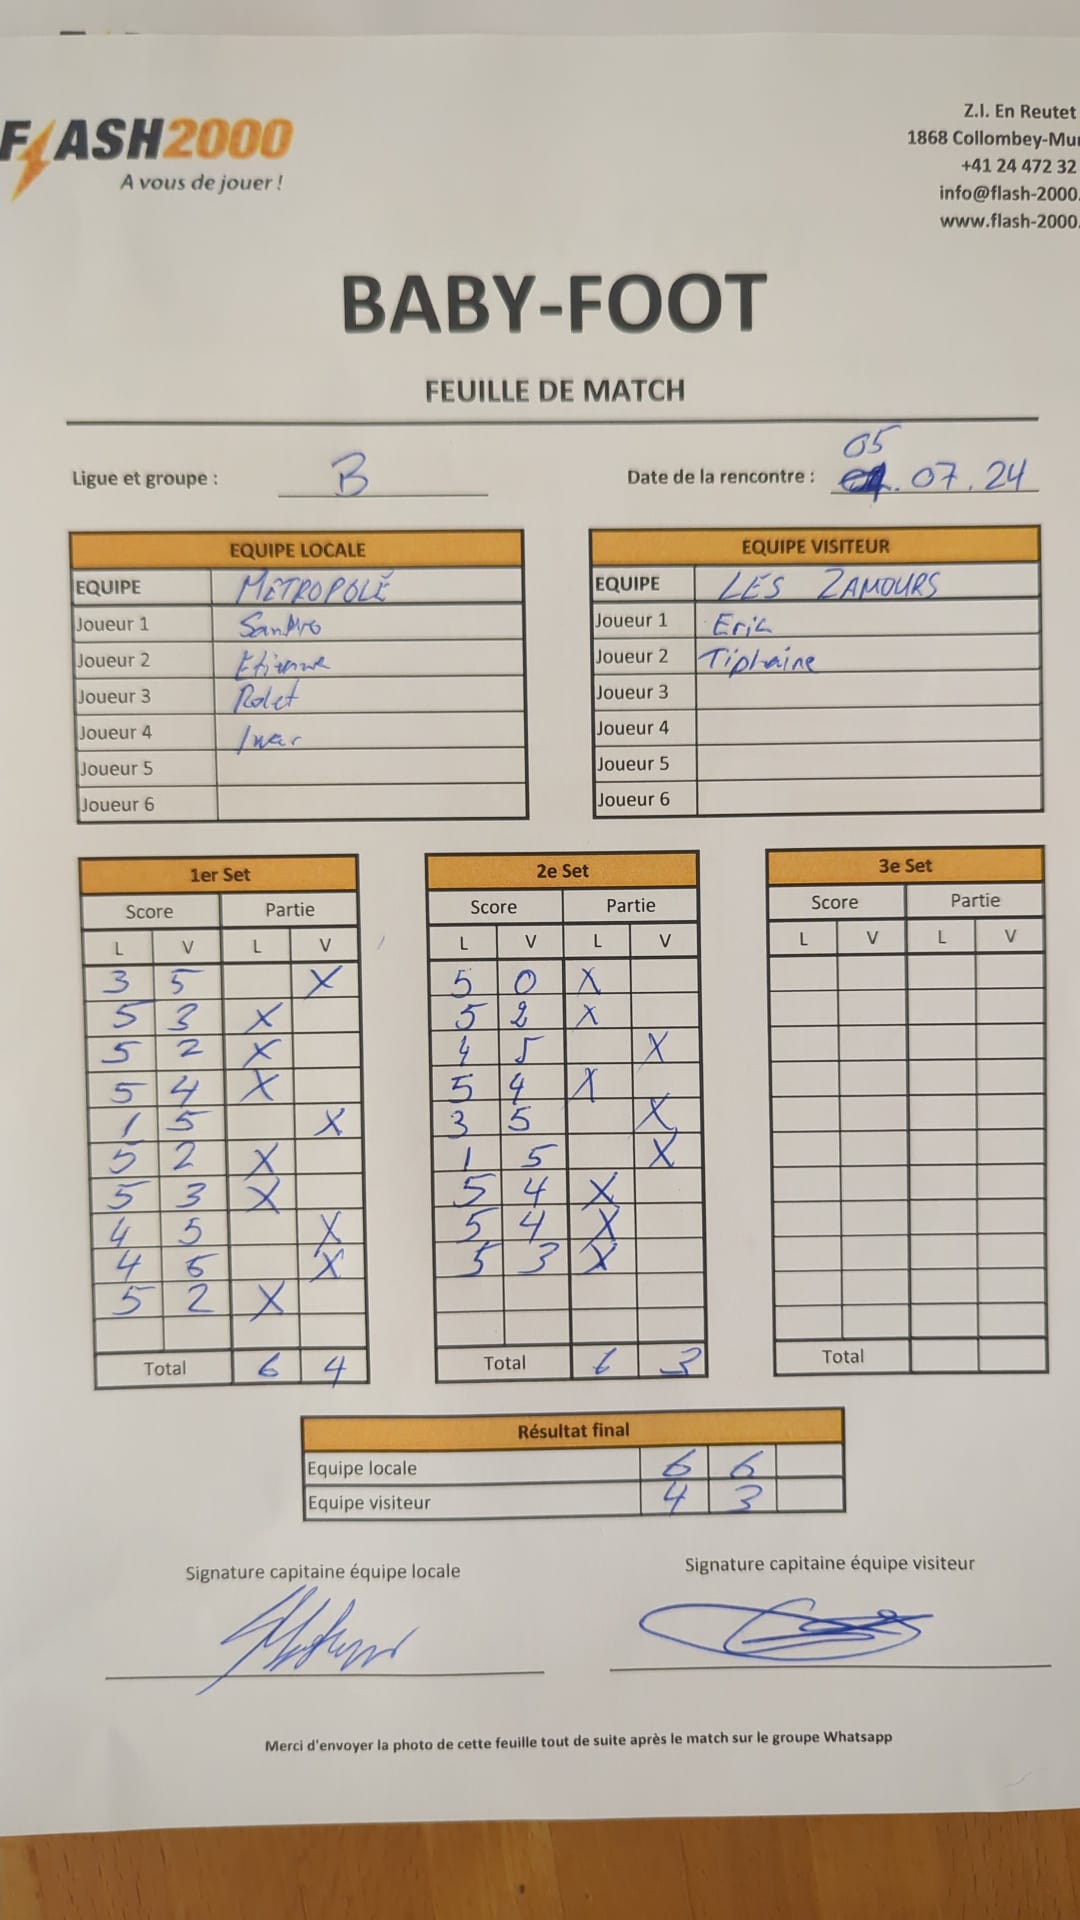 FLASH2000
A vous de jouer !
Z.I. En Reutet
1868 Collombey-Mu
+41 24 472 32
info@flash-2000.
www.flash-2000.
BABY-FOOT
FEUILLE DE MATCH
Ligue et groupe : B
Date de la rencontre : 05 . 07 . 24
EQUIPE LOCALE
EQUIPE METROPOLE
Joueur 1 Sandro
Joueur 2 Etienne
Joueur 3
Joueur 4
Joueur 5
Joueur 6
EQUIPE VISITEUR
EQUIPE LES ZAMOURS
Joueur 1 Eric
Joueur 2 Tiphaine
Joueur 3
Joueur 4
Joueur 5
Joueur 6
1er Set
Score Partie
L V L V
3 5 X
5 3 X
5 2 X
5 4 X
1 5 X
5 2 X
5 3 X
4 5 X
4 5 X
5 2 X
Total 6 4
2e Set
Score Partie
L V L V
5 0 X
5 2 X
4 5 X
5 4 X
3 5 X
1 5 X
5 4 X
5 4 X
5 3 X
Total 6 3
3e Set
Score Partie
L V L V
Total
Résultat final
Equipe locale 6 6
Equipe visiteur 4 3
Signature capitaine équipe locale
Signature capitaine équipe visiteur
Merci d'envoyer la photo de cette feuille tout de suite après le match sur le groupe Whatsapp